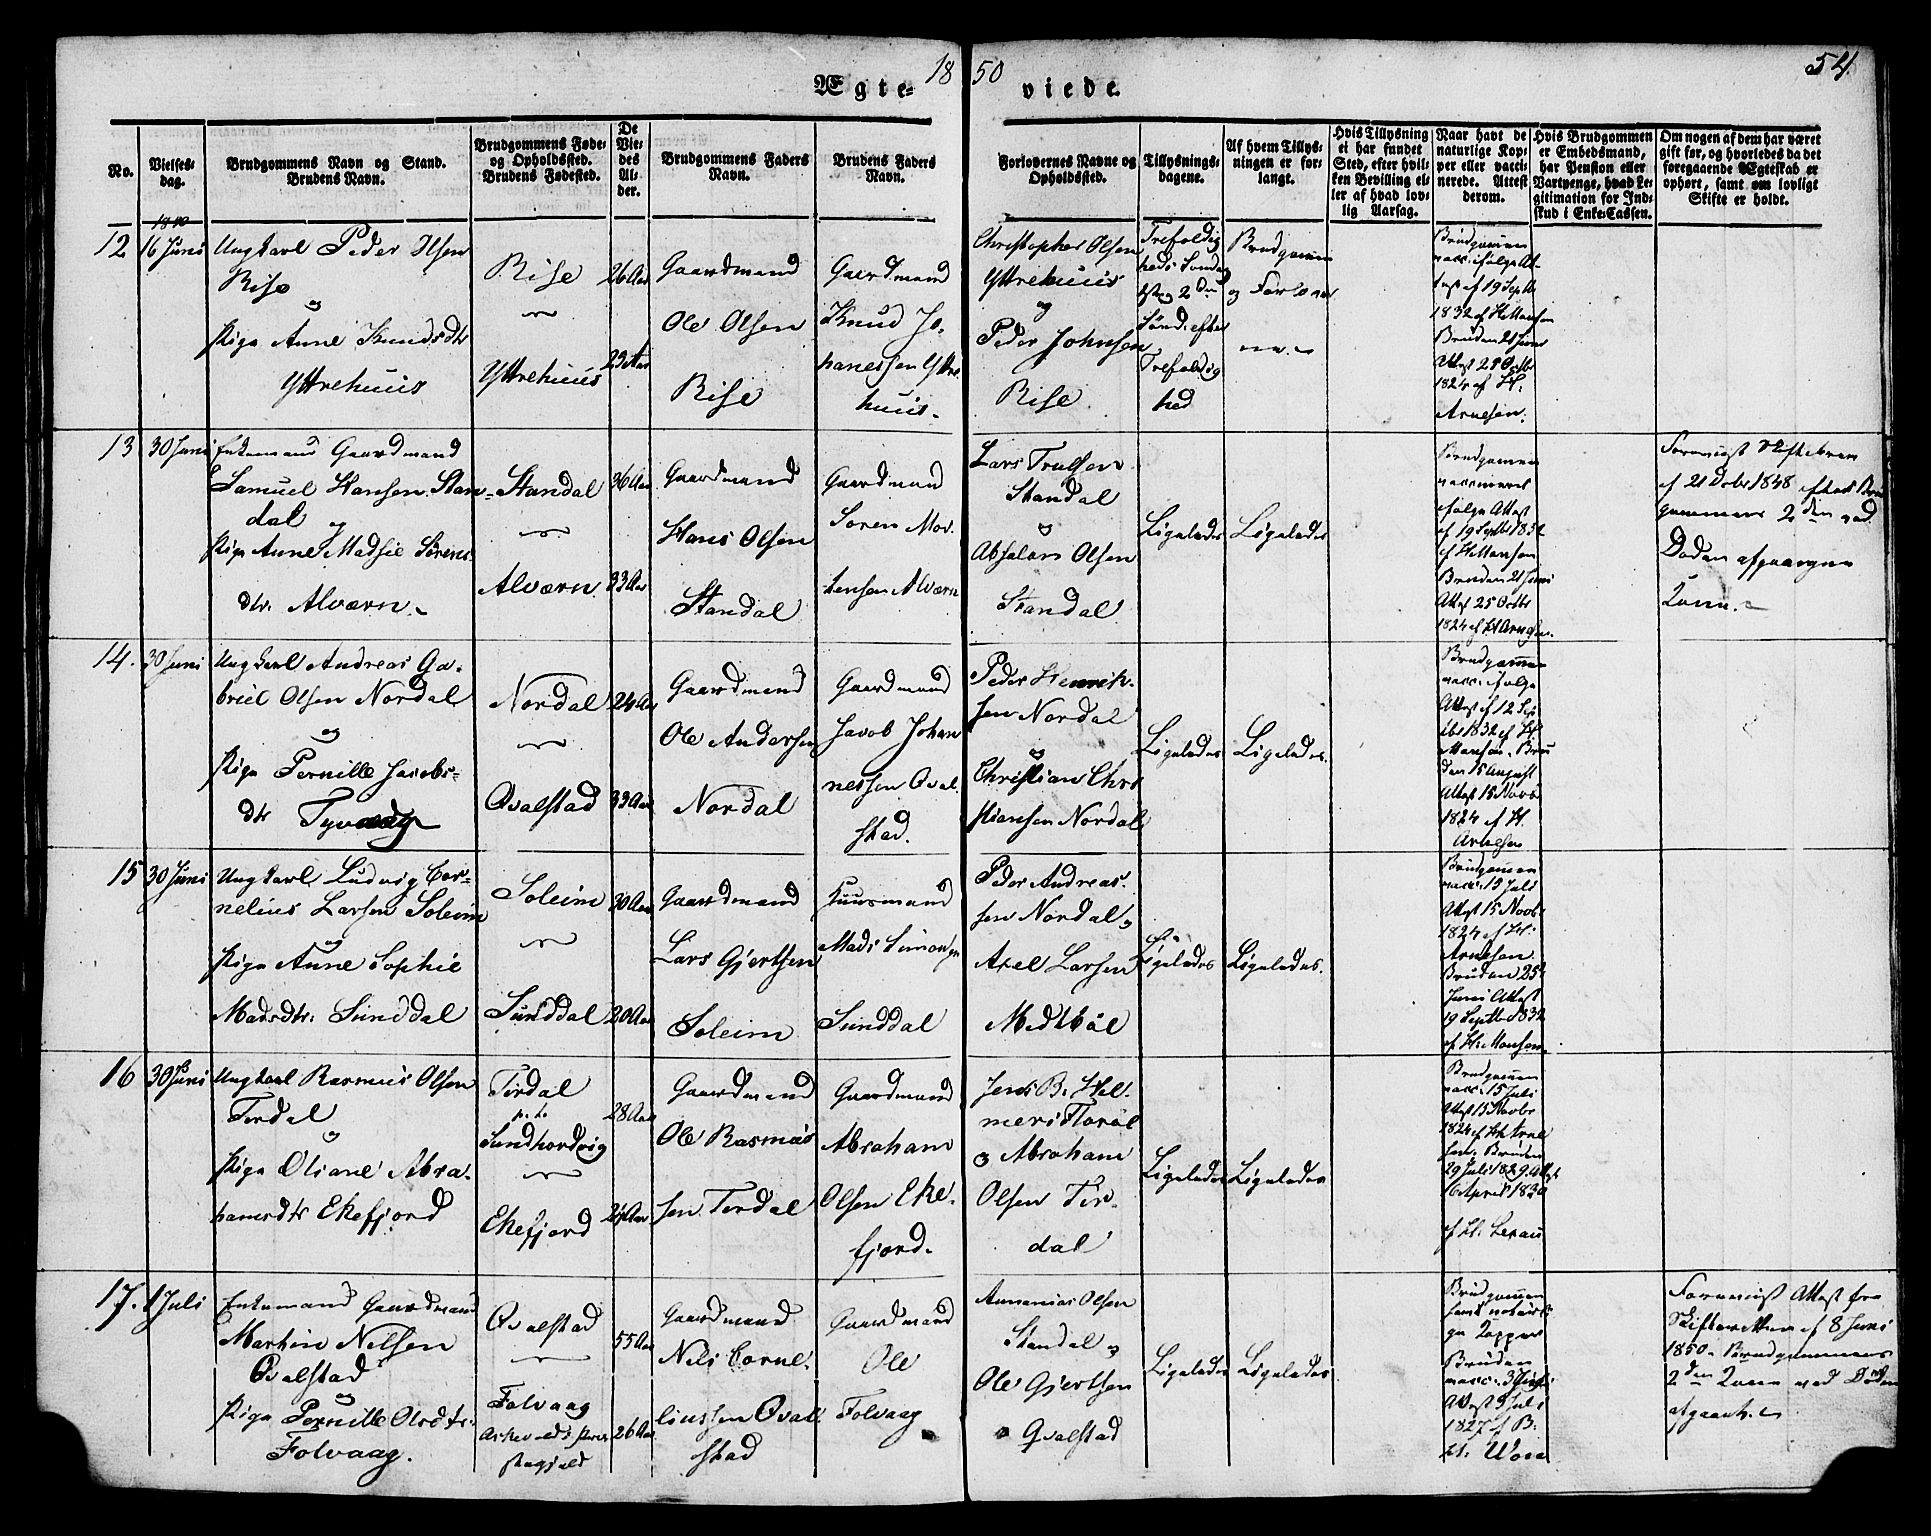 1850
54.
Ægteviede.
No.
Vielses-
dag.
Brudgommens Navn og Stand.
Brudens Navn.
Brudgommens Føde-
og Opholdssted.
Brudens Fødested.
De
Vie-
des
Al-
der.
Brudgommens Faders
Navn.
Brudens Faders
Navn.
Forlovernes Navne og
Opholdssted.
Tillysnings-
dagene.
Af hvem Tillys-
ningen er for-
langt.
Hvis Tillysning
ei har fundet
Sted, efter hvil-
ken Bevilling el-
ler af hvad lov-
lig Aarsag.
Naar havt de
naturlige Kop-
per eller vacci-
nerede. Attest
derom.
Hvis Brudgommen
er Embedsmand,
har Pension eller
Vartpenge, hvad Le-
gitimation for Ind-
skud i Enke-Cassen.
Om nogen af dem har været
gift før, og hvorledes da det
foregaaende Ægteskab er
ophørt, samt om lovligt
Skifte er holdt.
12
16 Juni
Ungkarl Peder Olsen
Rise
og
Pige Anne Knudsdtr
Yttrehuus
Rise
Yttrehuus
26 Aar
23 Aar
Gaardmand
Ole Olsen
Rise
Gaardmand
Knud Jo-
hanessen Yttre
huus.
Christopher Olsen
Yttrehuus
og
Peder Johnsen
Rise
Trefoldig
heds Søndag
og 2den
Sønd. efter
Trefoldig
hed
Brudgommen
og Forlover
Brudgommen
vacc. ifølge At-
test af 19 Septbr
1832 af H. Hansen
Bruden 21 Juni
Attest 29 Octbr
1824 af H.
Arnesen.
13
30 Juni
Enkemand Gaardmand
Samuel Hansen Stan-
dal
og
Pige Anne Madsie Sørens
dtr. Alværn.
Standal
Alværn
36 Aar
33 Aar
Gaardmand
Hans Olsen
Standal
Gaardmand
Søren Mor-
tensen Alværn
Lars Trulsen
Standal
og
Absalon Olsen
Standal
Ligeledes
Ligeledes
Brudgommen
ifølge Attest
af 19 Septbr 1832
af H. Hansen
Bruden 21 Juni
Attest 25 Octbr
1824 af H. Arnesen.
Foreviist Skiftebrev
af 21 Decbr 1848 efter Brud
gommens 2den ved
Døden afgangne
Kone.
14.
30 Juni
Ungkarl Andreas Ga-
briel Olsen Nordal
og
Pige Pernille Jacobs-
dtr Tyvaag
Nordal
Qvalstad
24 Aar
33 Aar
Gaardmand
Ole Andersen
Nordal
Gaardmand
Jacob Johan
nessen Qval
stad.
Peder Henrik-
sen Nordal
og
Christian Chri
stiansen Nordal
Ligeledes
Ligeledes.
Brudgommen
vacc. ifølge
Attest af 12 Sep
tbr 1832 af H.
Hansen. Bru
den 15 August
Attest 15 Novbr
1824 af H.
Arnesen
15
30 Juni
Ungkarl Ludvig Cor-
nelius Larsen Soleim
og
Pige Anne Sophie
Madsdtr. Sunddal
Soleim
Sunddal
30 Aar
20 Aar
Gaardmand
Lars Gjertsen
Soleim
Huusmand
Mads Simonsen
Sunddal
Peder Andreas-
sen Nordal og
Axel Larsen
Medtbøl
Ligeledes
Ligeledes.
Brudgommen
vacc. 15 Juli
Attest 15 Novbr
1824 af H.
Arnesen.
Bruden 25
Juni Attest
19 Septbr 1832
af H. Hansen.
16
30 Juni
Ungkarl Rasmus Olsen
Tirdal
og
Pige Oliane Abra-
hamsdtr Ekefjord
Tirdal
p. t.
Sundhordvig
Ekefjord
28 Aar
24 Aar
Gaardmand
Ole Rasmus
sen Tirdal
Gaardmand
Abraham
Olsen Eke-
fjord.
Jens B. Hel-
mers Florøe
og Abraham
Olsen Tir-
dal
Ligeledes
Ligeledes
Brudgommen
vacc. 15 Juli
Attest 15 Novbr
1824 af H. Arne
sen. Bruden
29 Juli 1829. Attest
16 April 1830
af H. Lexau
17.
1 Juli
Enkemand Gaardmand
Martin Nilsen
Qvalstad
og
Pige Pernille Olsdtr.
Folvaag.
Qvalstad
Folvaag
Askevolds Præs
stegjeld
55 Aar
26 Aar
Gaardmand
Nels Corne-
liussen Qval
stad
Gaardmand
Ole
Folvaag
Annanias Olsen
Standal og
Ole Gjertsen
Qvalstad
Ligeledes
Ligeledes
Brudgommen
havt naturli
ge Kopper
Bruden
vacc. 3 Juli
Attest 9 Juli
1827 af B.
H. Vova
Foreviist Attest fra
Skifteretten af 8 Juni
1850. Brudgommens
2den Kone ved Døden
afgaaet.